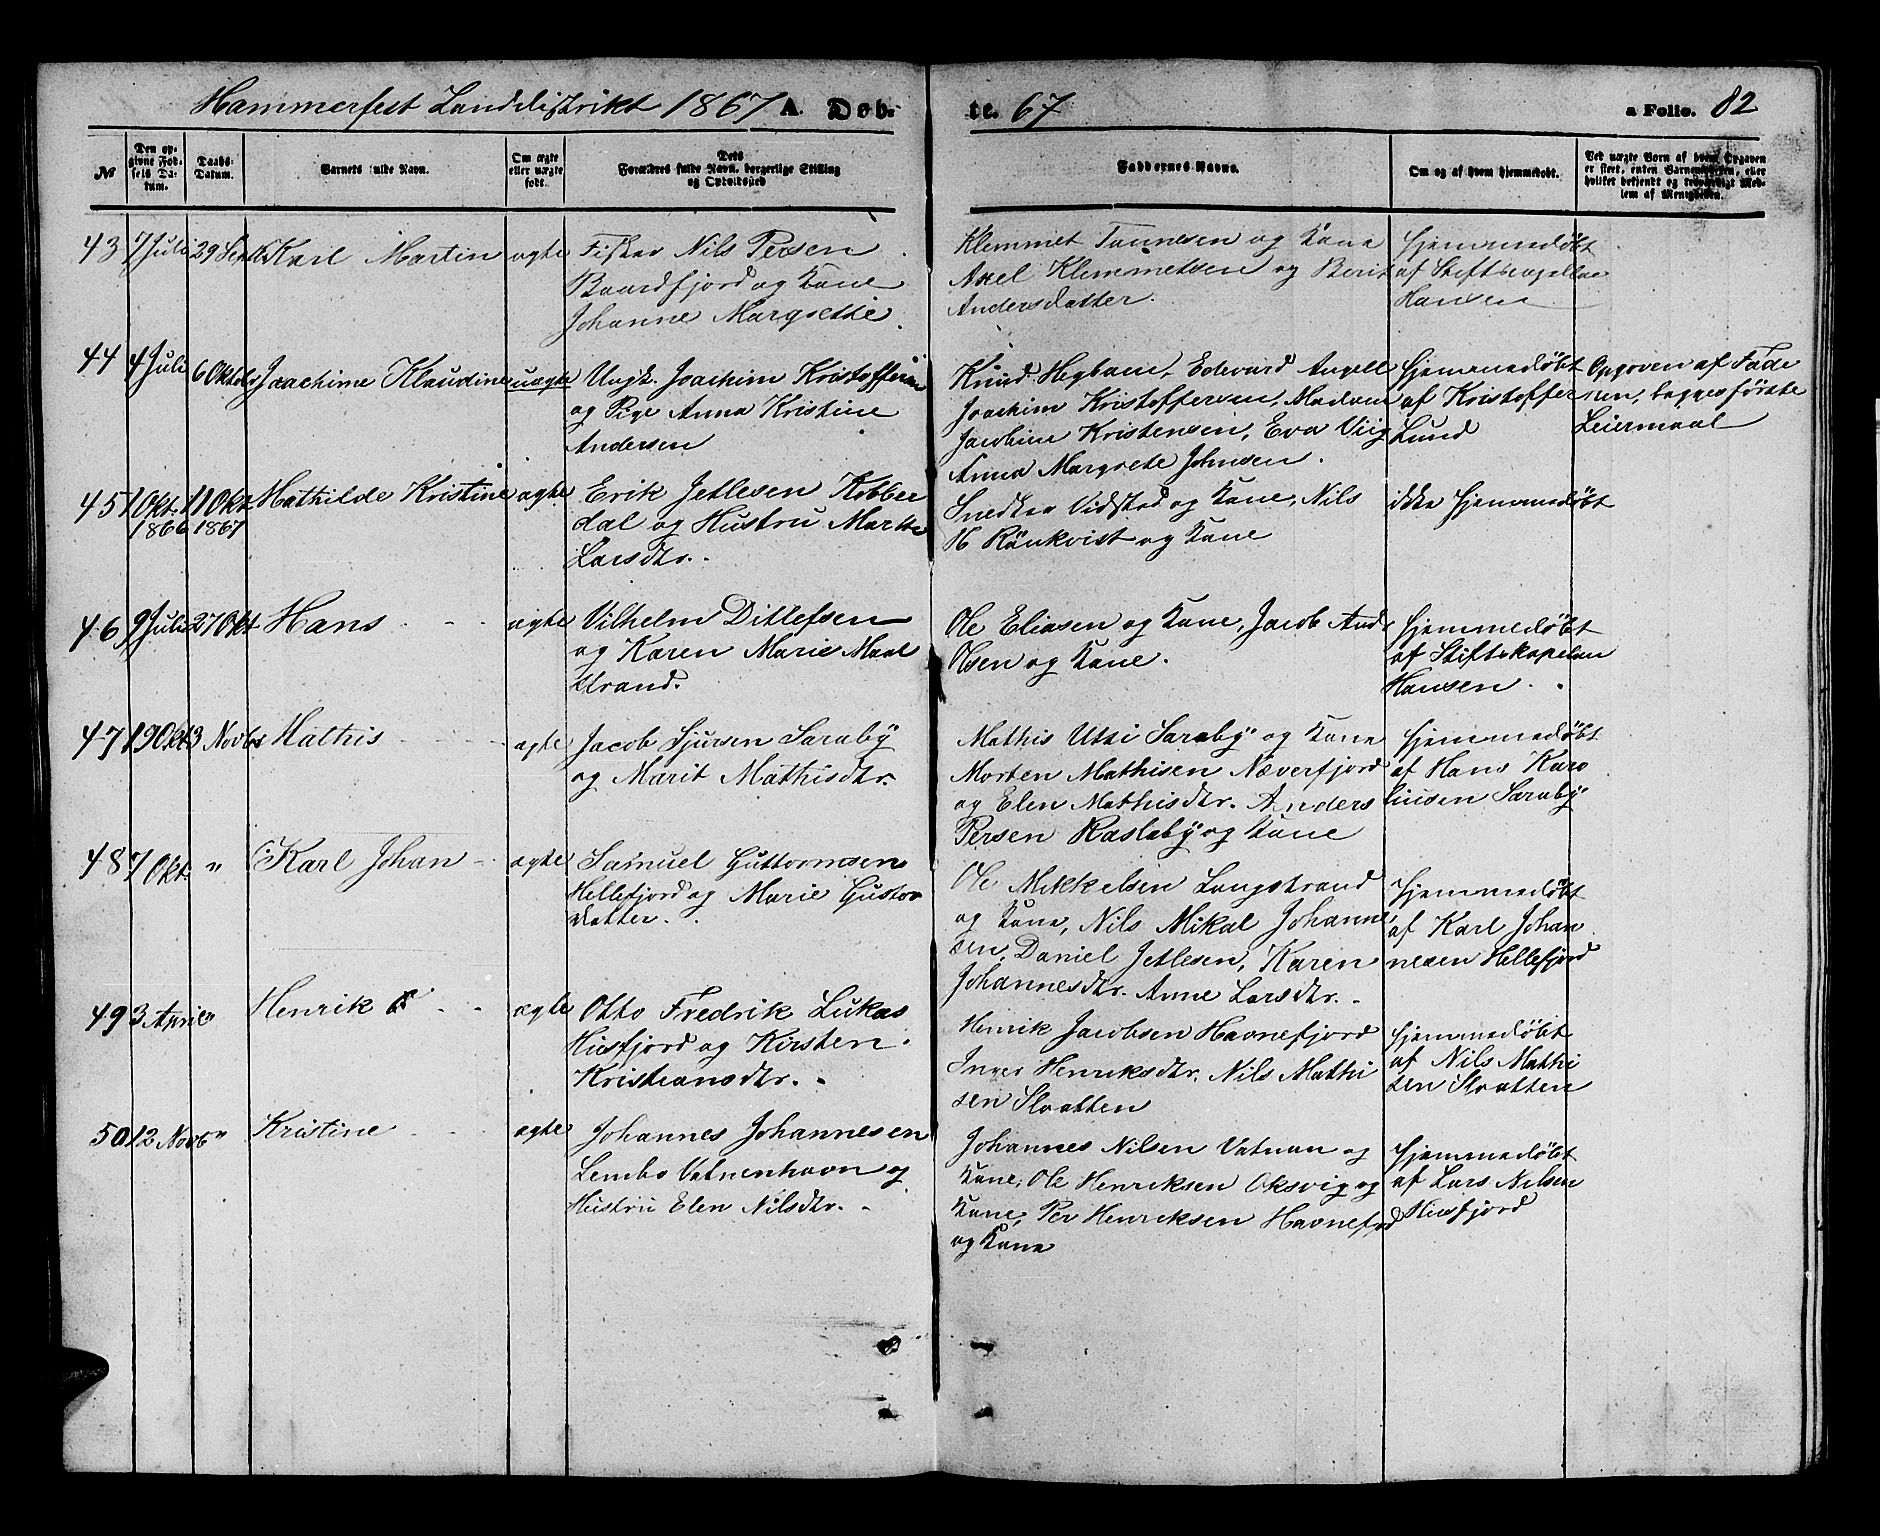 Hammerfest Landdistrikt 1867 A. Døb-
te. 67
a Folio. 82
№
Den op-
givne Fød-
sels Da-
tum.
Daabs-
Datum.
Barnets fulde Navn.
Om ægte
eller uægte
født.
Dets
Forældres fulde Navn, borgerlige Stilling
og Opholdssted
Faddernes Navne.
Om og af hvem hjemmedøbt.
Ved uægte Børn af hvem Opgaven
er skeet, enten Barnemoderen, eller
hvilket bekjendt og troværdigt Med-
lem af Menigheden.
43 7 Juli 29 Sept Karl Martin ægte
Fisker Nils Persen
Baardfjord og Kone
Johanne Margrethe
Klemmet Tønnesen og Kone
Axel Klemmetsen og Berit
Andersdatter.
Hjemmedøbt
af Stiftscapellan
Hansen
44 4 Juli 6 Oktober Joachime Klaudine uægte
Ungk. Joachim Kristoffersen
og Pige Anna Kristine
Andersen
Knud Hegbom, Edevard Angell
Joachim Kristoffersen, Madame
Jacobine Kristensen, Eva Viig
Anna Margrete Johnsen.
Hjemmedøbt
af Kristoffer
Lund
Opgaven af Fade
ren, begges første
Leiermaal
45 1 Okt. 1866 11 Okt 1867 Mathilde Kristine ægte
Erik Jetlesen Kobbe
dal og Hustru Marthe
Larsdtr.
Snedker Vidsted og Kone, Nils
H Rönkvist og Kone
ikke Hjemmedøbt
46 9 Juli 27 Okt Hans ægte
Vilhelm Ditlefsen
og Karen Marie Maal
strand.
Ole Eliasen og Kone, Jacob And.
Olsen og Kone.
Hjemmedøbt
af Stiftskapelan
Hansen.
47 19 Okt 3 Novbr Mathis ægte
Jacob Sjursen Saraby
og Marit Mathisdtr.
Mathis Utsi Saraby og Kone
Morten Mathisen Næverfjord
og Elen Mathisdtr. Anders
Persen Rasleby og Kone
Hjemmedøbt
af Hans Karo
liusen Saraby
48 7 Okt. " Karl Johan ægte
Samuel Guttormsen
Hellefjord og Marie Gustav
datter.
Ole Mikkelsen Langstrand
og Kone, Nils Mikal Johanne
sen, Daniel Jetlesen, Karen
Johannesdtr. Anne Larsdtr.
Hjemmedøbt
af Karl Johan
nesen Hellefjord
49 3 April " Henrik ægte
Otto Fredrik Lukas
Husfjord og Kirsten
Kristiansdtr.
Henrik Jacobsen Havnefjord
Inger Henriksdtr, Nils Mathi
sen Slaatten
Hjemmedøbt
af Nils Mathi
sen Slaatten
50 12 Novb " Kristine ægte
Johannes Johannesen
Lembo Vatnenhavn og
Hustru Elen Nilsdtr.
Johannes Nilsen Vatnan og
Kone, Ole Henriksen Oksvig og
Kone, Per Henriksen Havnefjd
og Kone
Hjemmedøbt
af Lars Nilsen
Husfjord